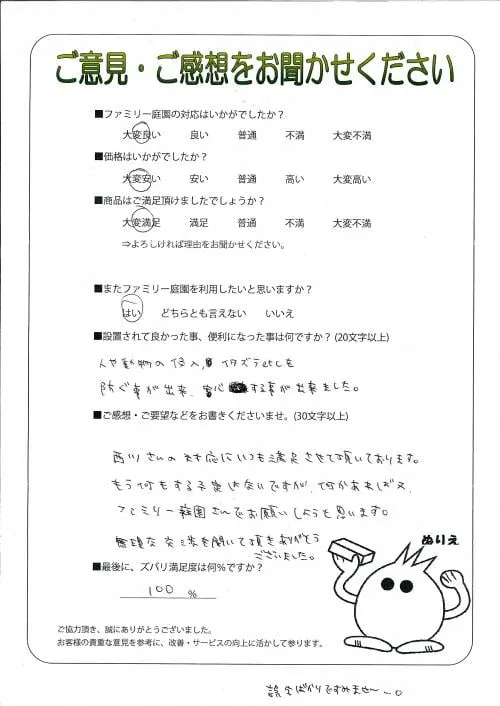 ご意見・ご感想をお聞かせください
■ファミリー庭園の対応はいかがでしたか？
大変良い 良い 普通 不満 大変不満
■価格はいかがでしたか？
大変安い 安い 普通 高い 大変高い
■商品はご満足頂けましたでしょうか？
大変満足 満足 普通 不満 大変不満
⇒よろしければ理由をお聞かせください。
■またファミリー庭園を利用したいと思いますか？
はい どちらとも言えない いいえ
■設置されて良かった事、便利になった事は何ですか？(20文字以上)
人や動物の侵入、イタズラetcを
防ぐ事が出来、安心する事が出来ました。
■ご感想・ご要望などをお書きくださいませ。(30文字以上)
西川さんの対応にいつも満足させて頂いております。
もう何もする予定は無いですが、何かあれば又、
ファミリー庭園さんでお願いしようと思います。
無理な交渉を聞いて頂きありがとう
ございました。
ぬりえ
■最後に、ズバリ満足度は何%ですか？
100 %
ご協力頂き、誠にありがとうございました。
お客様の貴重な意見を参考に、改善・サービスの向上に活かして参ります。
ばかりですみません…。